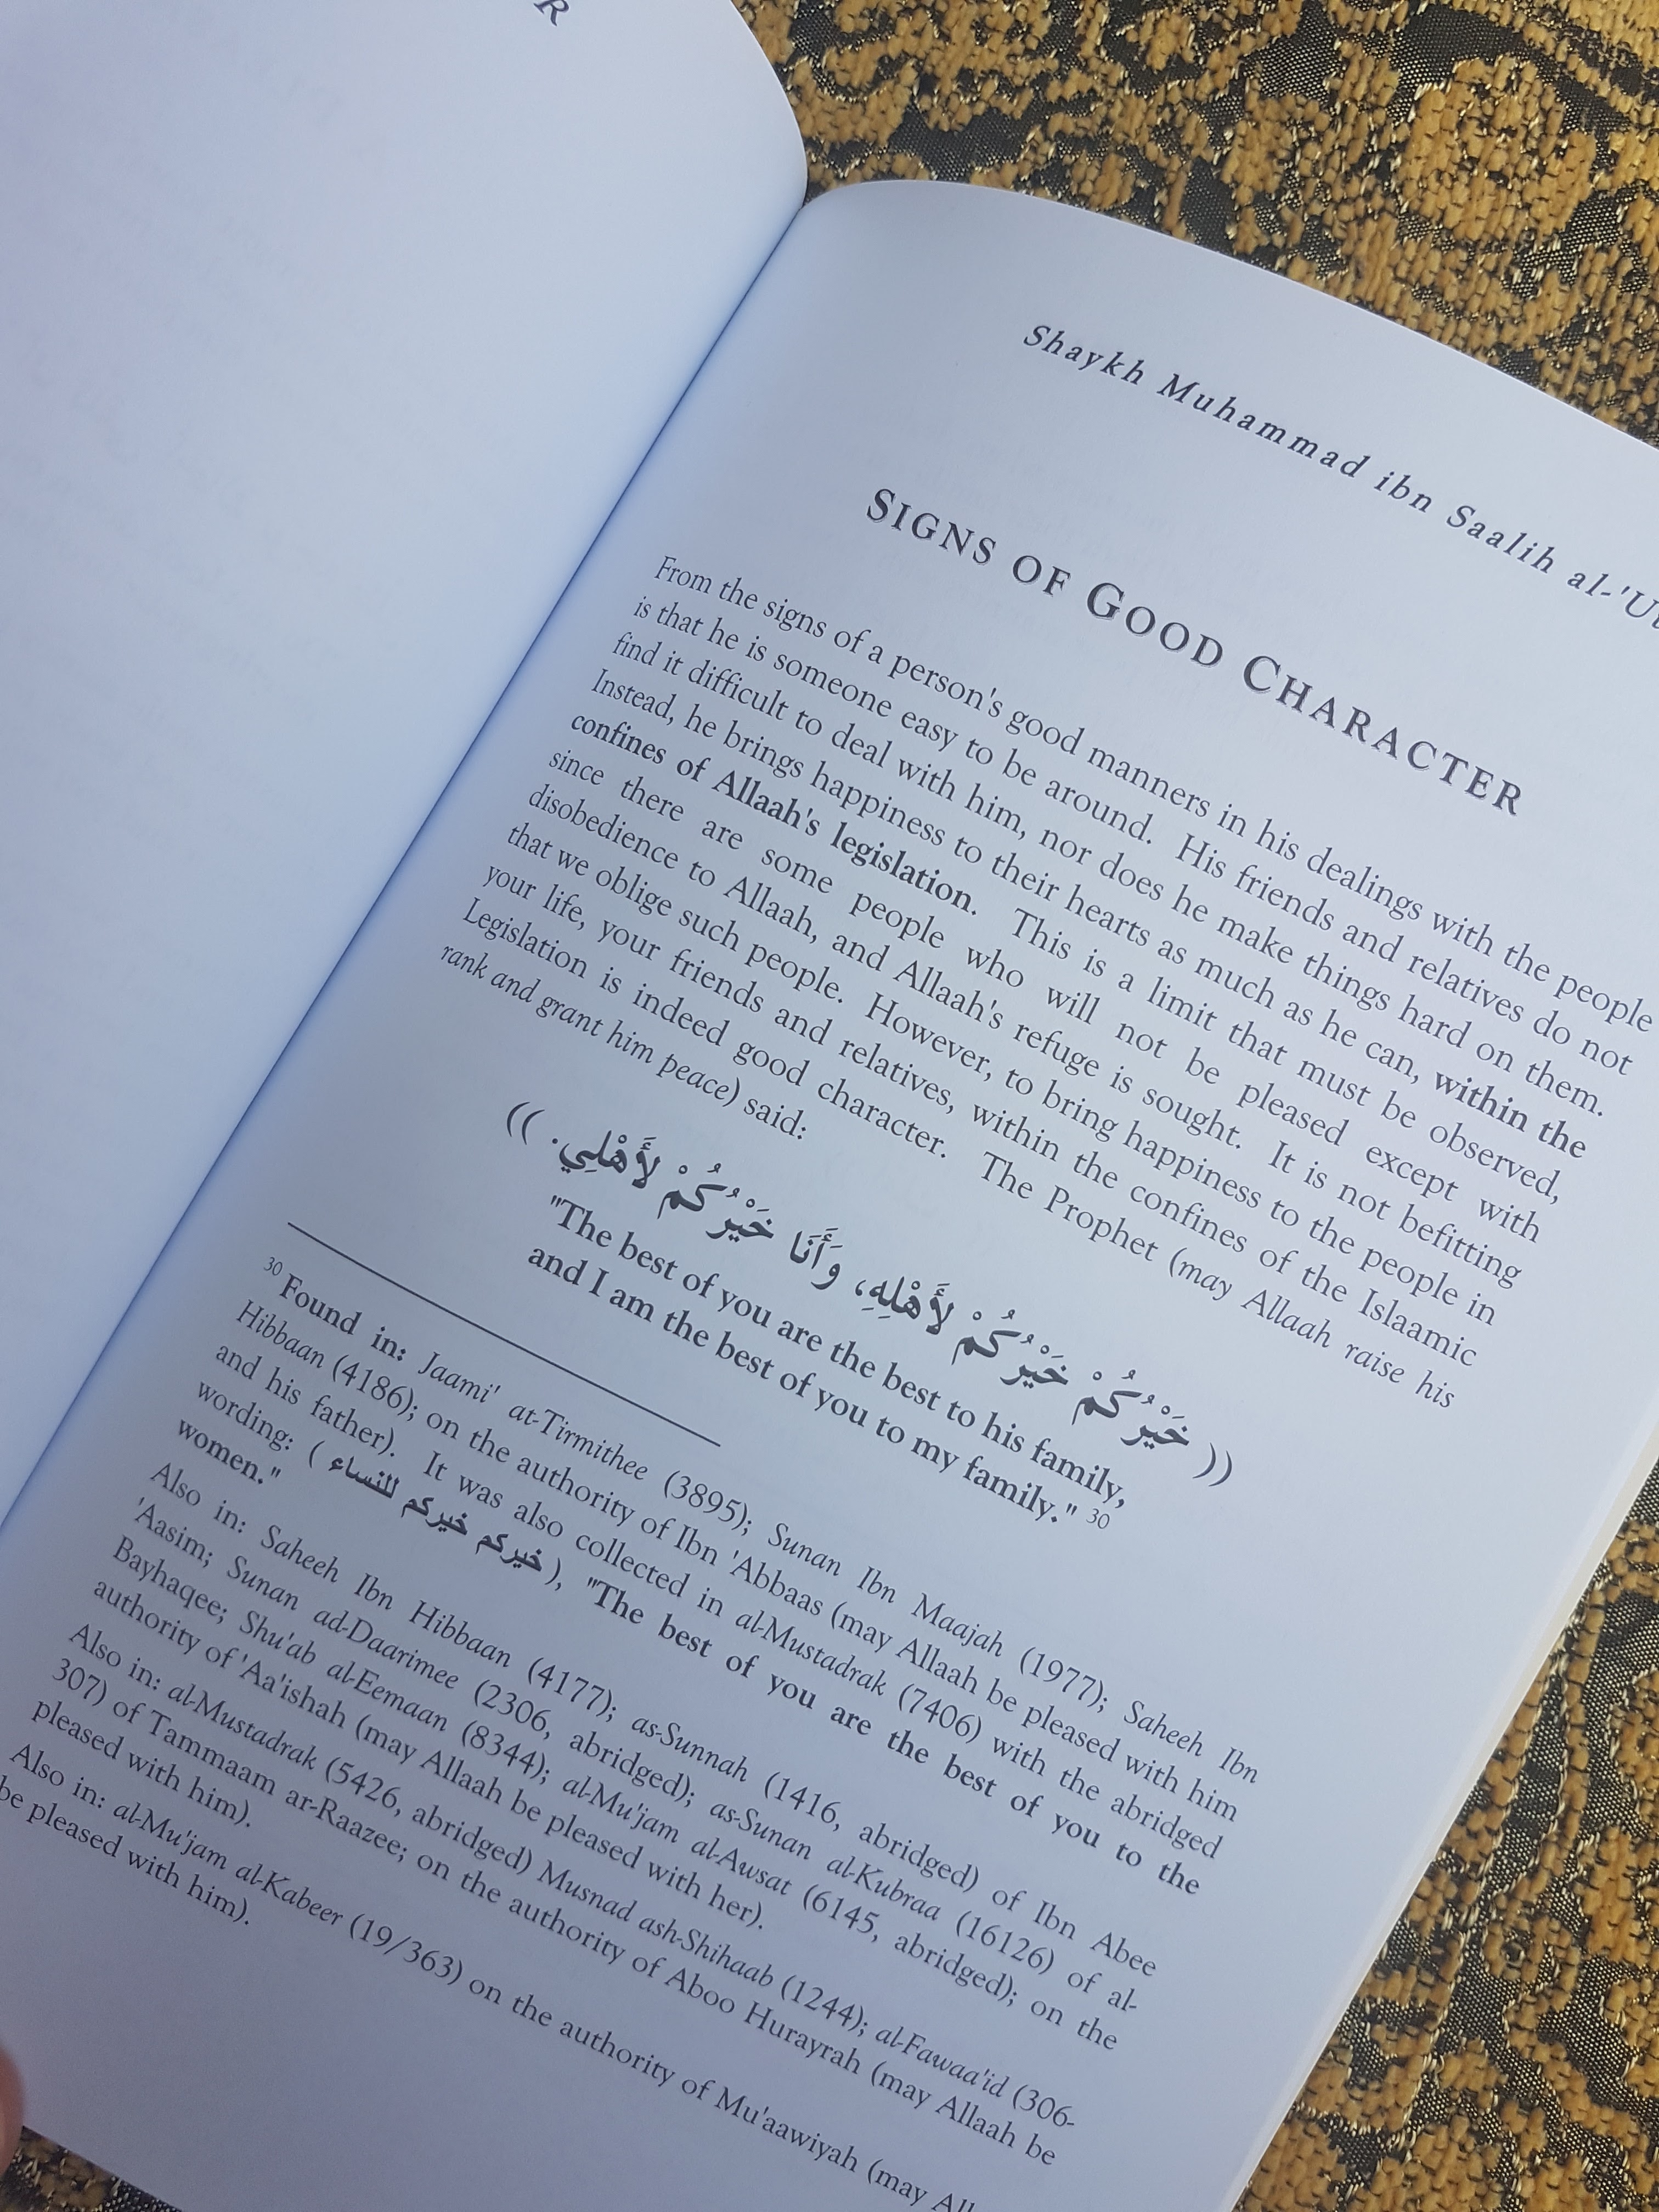 R
Shaykh Muhammad ibn Saalih al-'U
SIGNS OF GOOD CHARACTER
From the signs of a person's good manners in his dealings with the people
is that he is someone easy to be around. His friends and relatives do not
find it difficult to deal with him, nor does he make things hard on them.
Instead, he brings happiness to their hearts as much as he can, within the
confines of Allaah's legislation. This is a limit that must be observed,
since there are some people who will not be pleased except with
disobedience to Allaah, and Allaah's refuge is sought. It is not befitting
that we oblige such people. However, to bring happiness to the people in
your life, your friends and relatives, within the confines of the Islaamic
Legislation is indeed good character. The Prophet (may Allaah raise his
rank and grant him peace) said:
(( خَيْرُكُمْ خَيْرُكُمْ لأَهْلِهِ، وَأَنَا خَيْرُكُمْ لأَهْلِي. ))
"The best of you are the best to his family,
and I am the best of you to my family." 30
30 Found in: Jaami' at-Tirmithee (3895); Sunan Ibn Maajah (1977); Saheeh Ibn
Hibbaan (4186); on the authority of Ibn 'Abbaas (may Allaah be pleased with him
and his father). It was also collected in al-Mustadrak (7406) with the abridged
wording: ( خيركم خيركم للنساء ), "The best of you are the best of you to the
women."
Also in: Saheeh Ibn Hibbaan (4177); as-Sunnah (1416, abridged) of Ibn Abee
'Aasim; Sunan ad-Daarimee (2306, abridged); as-Sunan al-Kubraa (16126) of al-
Bayhaqee; Shu'ab al-Eemaan (8344); al-Mu'jam al-Awsat (6145, abridged); on the
authority of 'Aa'ishah (may Allaah be pleased with her).
Also in: al-Mustadrak (5426, abridged) Musnad ash-Shihaab (1244); al-Fawaa'id (306-
307) of Tammaam ar-Raazee; on the authority of Aboo Hurayrah (may Allaah be
pleased with him).
Also in: al-Mu'jam al-Kabeer (19/363) on the authority of Mu'aawiyah (may All
be pleased with him).